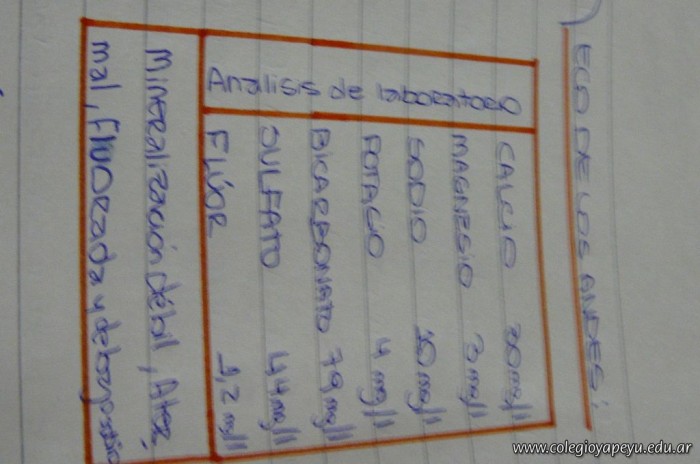 ECO DE LOS ANDES:
Analisis de laboratorio
CALCIO 30 mg/l
MAGNESIO 3 mg/l
SODIO 10 mg/l
POTASIO 4 mg/l
BICARBONATO 79 mg/l
SULFATO 44 mg/l
FLÚOR 1,2 mg/l
Mineralización débil,
mal, Fluorada y de bajo sodio
www.colegioyapeyu.edu.ar